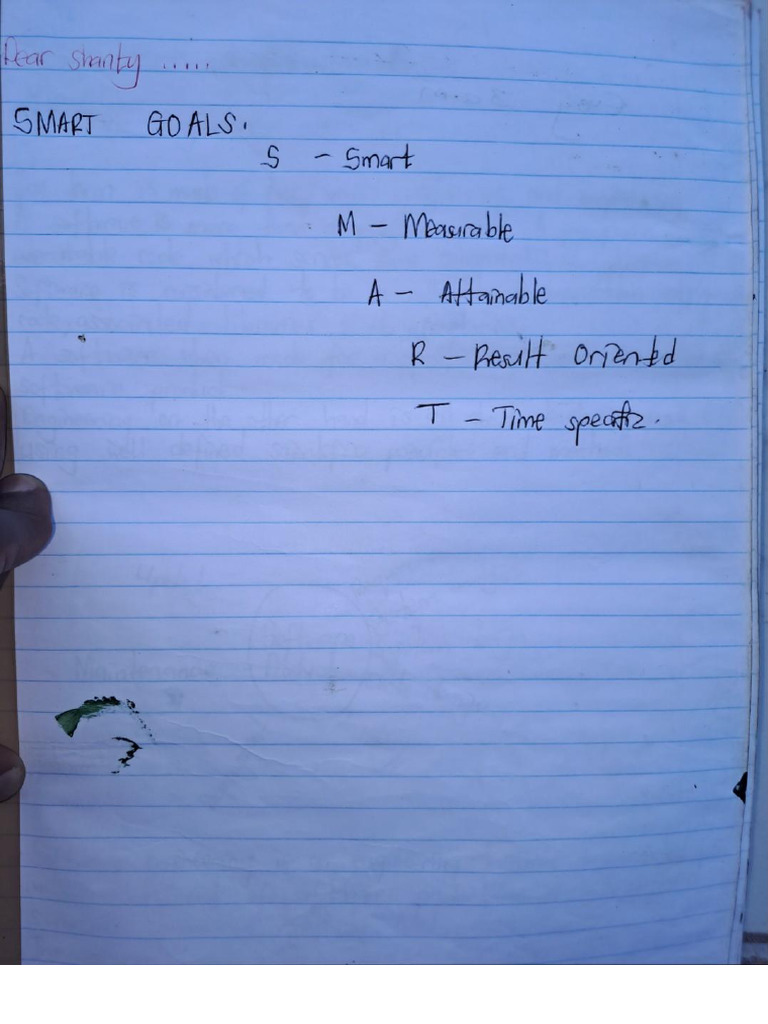 Dear shanty .....
SMART GOALS.
S - Smart
M - Measurable
A - Attainable
R - Result Oriented
T - Time specific.